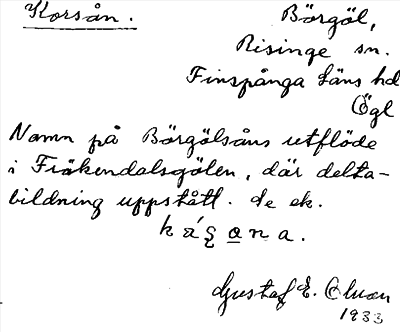 Korsån.
Börgöl,
Risinge sn.
Finspånga läns hd
Ögl
Namn på Börgölsåns utflöde
i Fräkendalsgölen, där delta-
bildning uppstått. Se ek.
Gustaf E.
1933